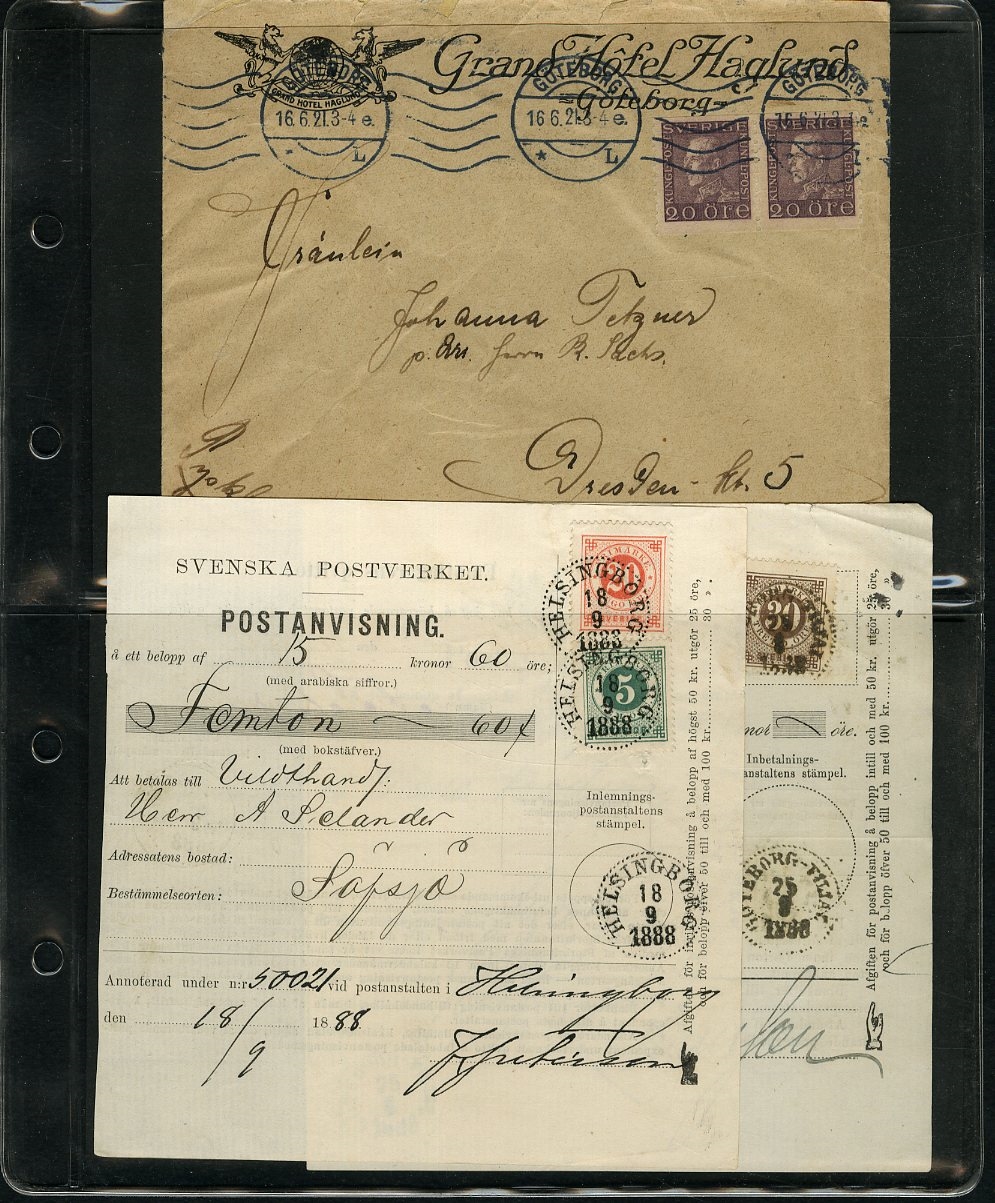 Grand Hôtel Haglund
Göteborg
GRAND HOTEL HAGLUND
GÖTEBORG
16.6.21.3-4 e.
L
GÖTEBORG
16.6.21.3-4 e.
L
GÖTEBORG
SVERIGE
KUNGL.POST
20 öre
SVERIGE
KUNGL.POST
20 öre
Fräulein
Johanna Tetzner
p. Adr. Herrn R. Sachs.
Dresden - 5
SVENSKA POSTVERKET.
POSTANVISNING.
å ett belopp af 15 kronor 60 öre;
(med arabiska siffror.)
Femton 60
(med bokstäfver.)
Att betalas till
Herr A Selander
Adressatens bostad:
Bestämmelseorten: Säfsjö
Inlemnings-
postanstaltens
stämpel.
HELSINGBORG
18
9
1888
HELSINGBORG
18
9
1888
5
HELSINGBORG
18
9
1888
Annoterad under n:r 50021 vid postanstalten i Helsingborg
den 18/9 1888.
Afgiften för
och för belopp öfver 50 till och med 100 kr. 30 ».
30
nor öre.
Inbetalnings-
anstaltens stämpel.
GÖTEBORG-FILIAL
25
9
1888
Afgiften för postanvisning å belopp intill och med 50 kr. utgör 25 öre,
och för belopp öfver 50 till och med 100 kr. 30 ».